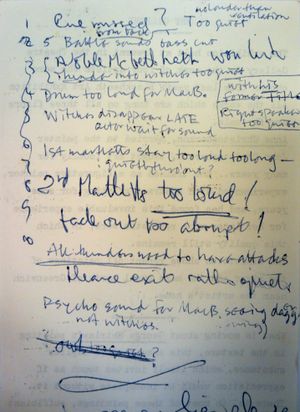 1 Cue missed ? Too quiet
no louder than ventilation
from back
2 5 Battle sounds bass cut
3 A Noble Macbeth hath won
thunder into witches too quiet
4 Drum too loud for MacB.
with his former Title
Right speaker too quiet
5 Witches disappear LATE
actor wait for sound
6 1st Martletts start too loud too long –
quieter throughout?
8 2nd Martletts too loud!
9 fade out too abrupt!
10 All thunders need to have attacks
Fleance exit rather quiet.
Psycho sound for MacB. seeing dagg.
not witches.
?